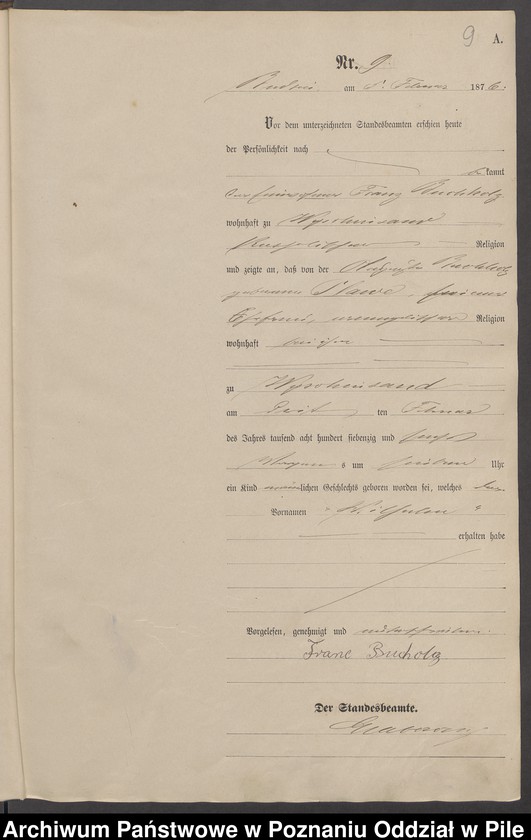 9 A.
Nr. 9
am Februar 1876.
Vor dem unterzeichneten Standesbeamten erschien heute
der Persönlichkeit nach
bekannt
Franz Buchholz
wohnhaft zu
katholischer Religion
und zeigte an, daß von der Buchholz
geborene , seiner
Ehefrau, evangelischer Religion
wohnhaft bei ihm
zu
am drei ten Februar
des Jahres tausend acht hundert siebenzig und sechs
Morgens um sieben Uhr
ein Kind männlichen Geschlechts geboren worden sei, welches den
Vornamen " Wilhelm "
erhalten habe
Vorgelesen, genehmigt und unterschrieben.
Franc Bucholz
Der Standesbeamte.
Archiwum Państwowe w Poznaniu Oddział w Pile